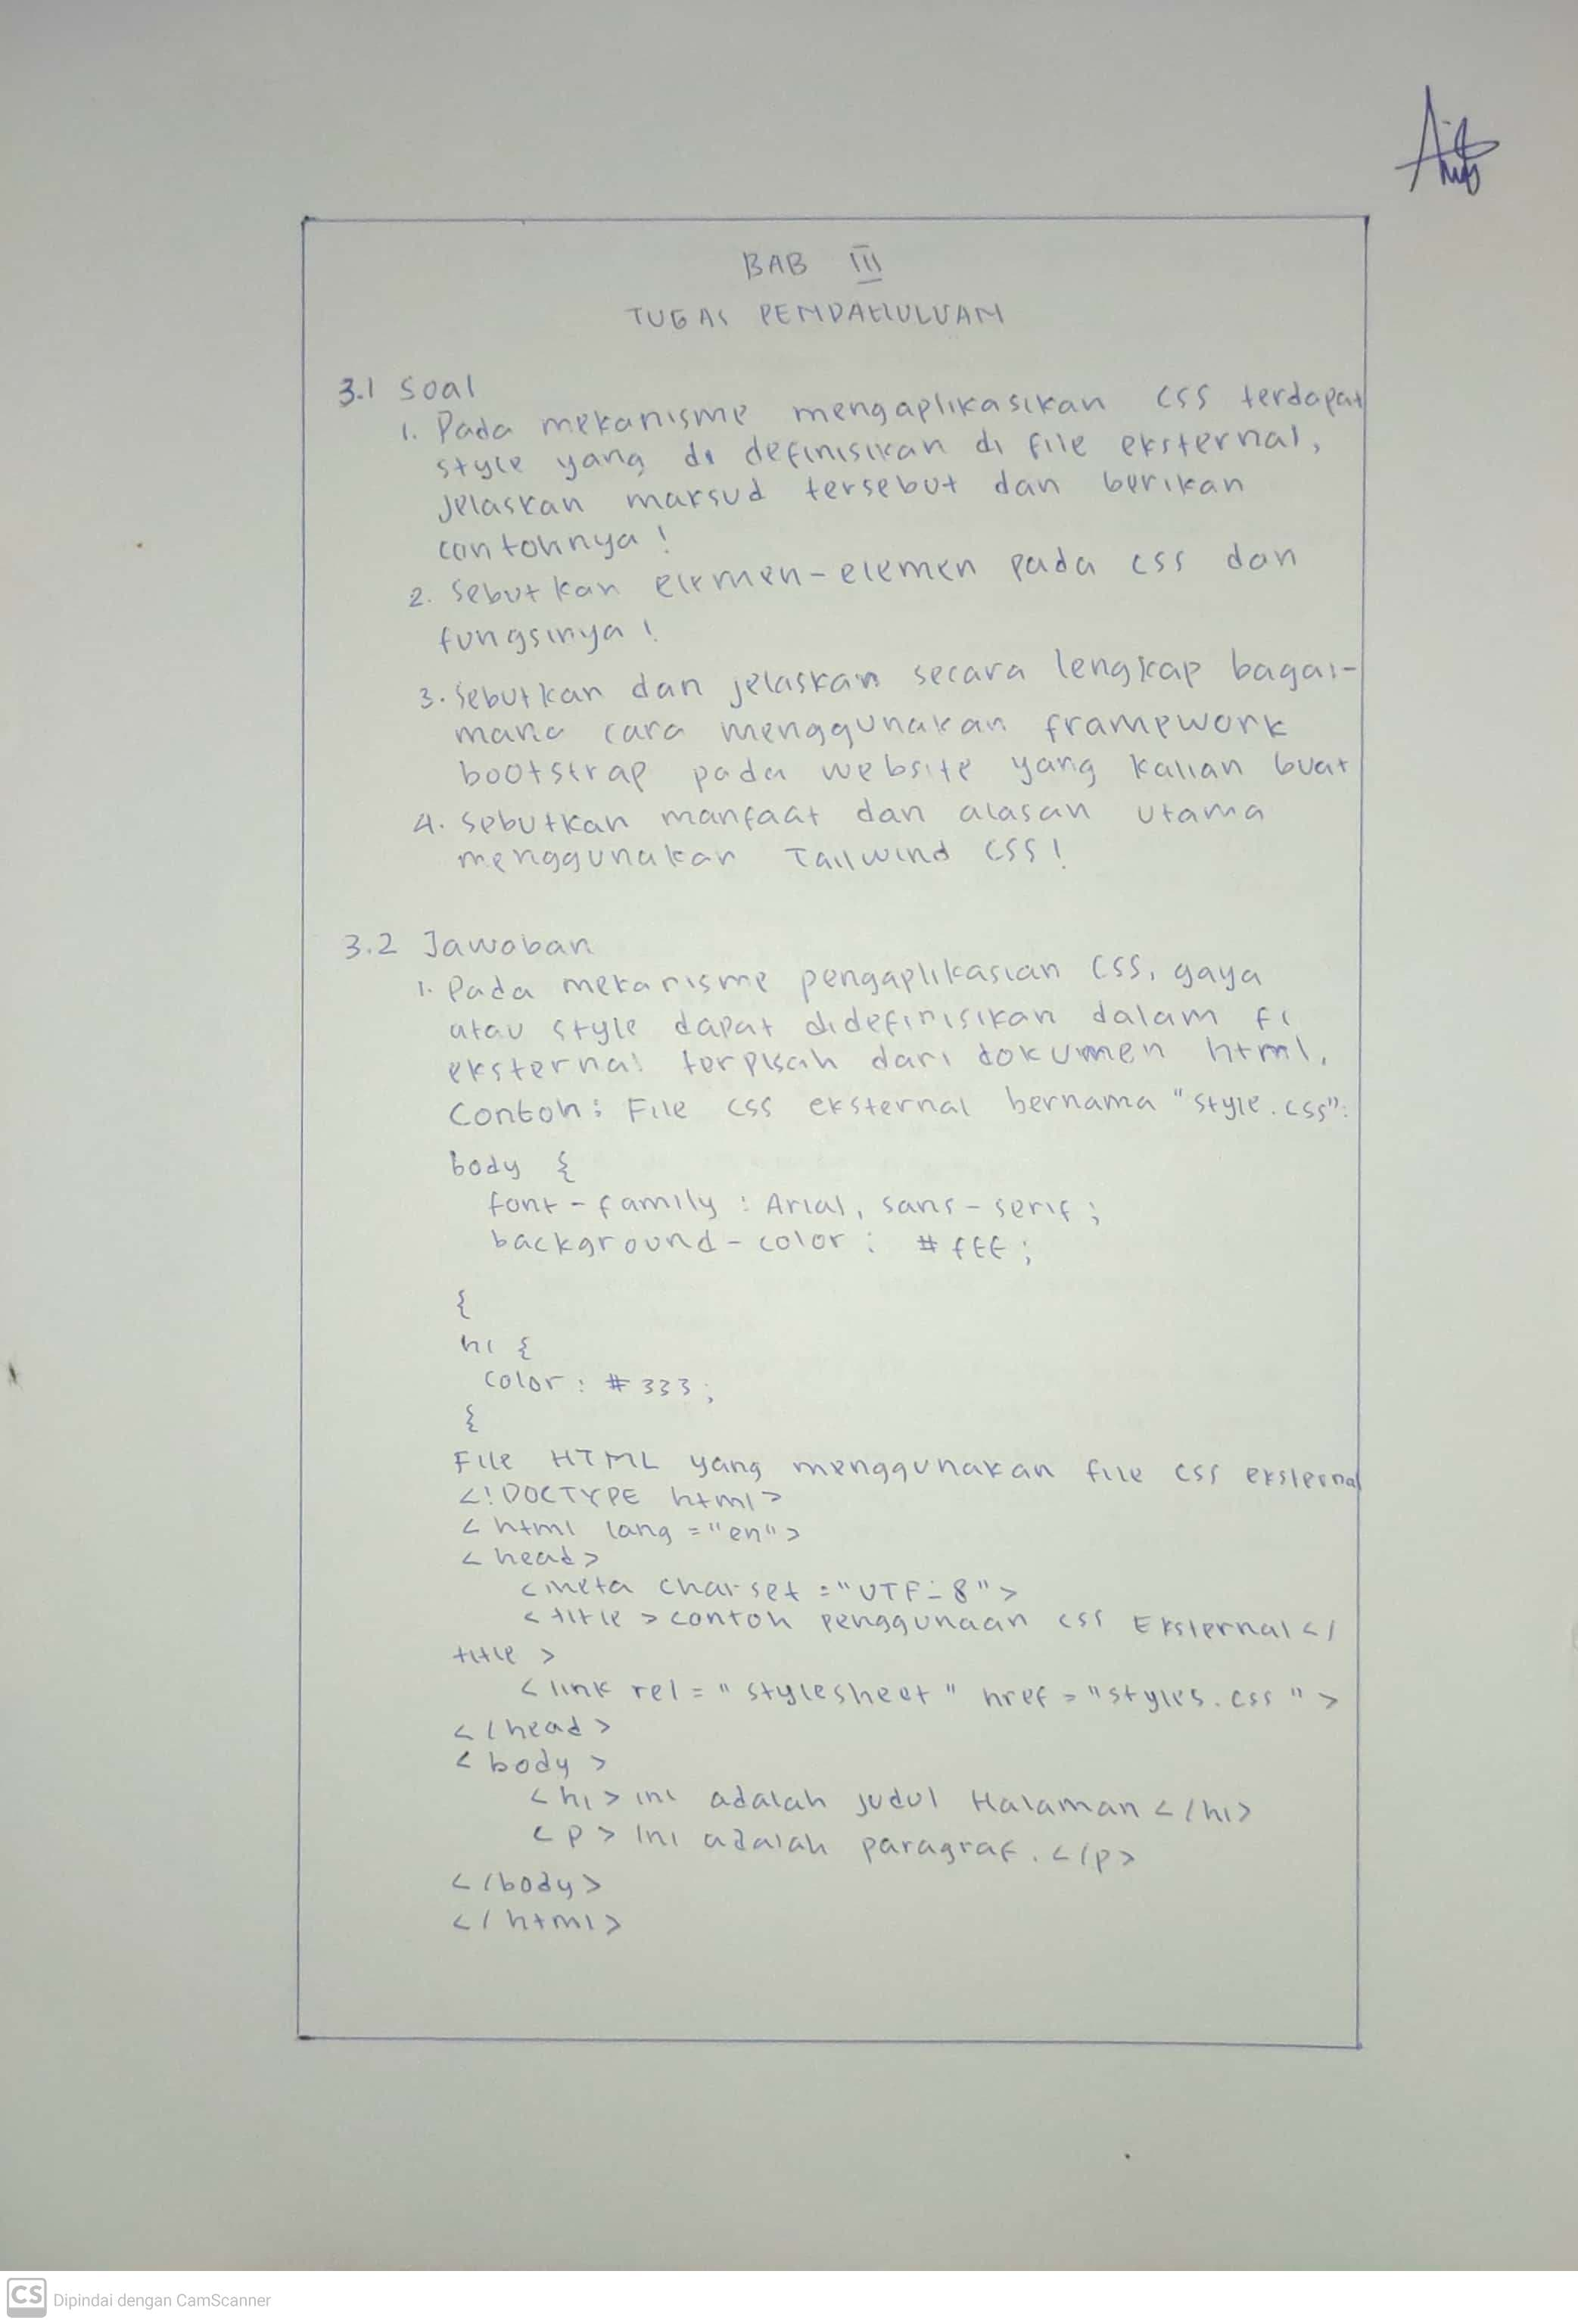 BAB III
TUGAS PENDAHULUAN
3.1 Soal
1. Pada mekanisme mengaplikasikan CSS terdapat
style yang di definisikan di file eksternal,
Jelaskan maksud tersebut dan berikan
contohnya !
2. Sebutkan elemen-elemen pada css dan
fungsinya !
3. Sebutkan dan jelaskan secara lengkap bagai-
mana cara menggunakan framework
bootstrap pada website yang kalian buat
4. Sebutkan manfaat dan alasan utama
menggunakan Tailwind CSS !
3.2 Jawaban
1. Pada mekanisme pengaplikasian CSS, gaya
atau style dapat didefinisikan dalam fi
eksternal terpisah dari dokumen html,
Contoh : File css eksternal bernama "style.css":
body {
font-family : Arial, sans-serif ;
background-color : #fff ;
{
h1 {
color : #333 ;
{
File HTML yang menggunakan file css eksternal
<!DOCTYPE html>
<html lang="en">
<head>
<meta charset="UTF-8">
<title>contoh penggunaan css Eksternal</
title>
<link rel="stylesheet" href="styles.css">
</head>
<body>
<h1> ini adalah judul Halaman </h1>
<p> Ini adalah paragraf. </p>
</body>
</html>
CS Dipindai dengan CamScanner